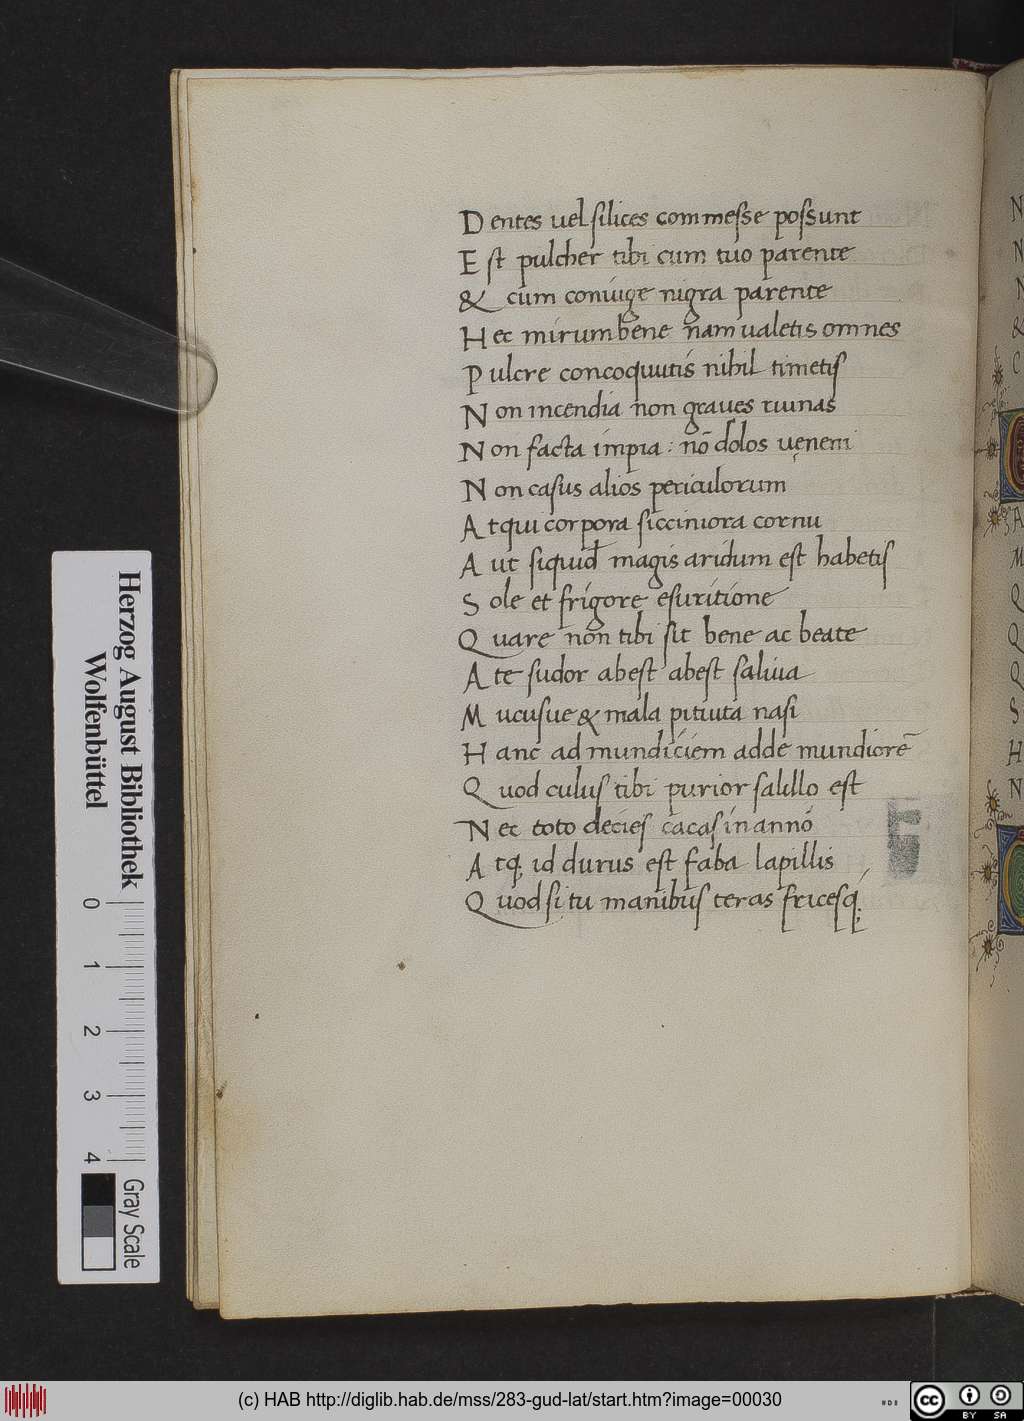 Dentes uel silices commesse possunt
Est pulcher tibi cum tuo parente
& cum coniuge nigra parente
Hec mirum bene nam ualetis omnes
Pulcre concoquitis nihil timetis
Non incendia non graues ruinas
Non facta impia : nō dolos uęneni
Non casus alios periculorum
Atqui corpora sicciniora cornu
Aut siquid magis aridum est habetis
Sole et frigore esuritione
Quare non tibi sit bene ac beate
A te sudor abest abest saliua
Mucusue & mala pituita nasi
Hanc ad mundiciem adde mundiorē
Quod culus tibi purior salillo est
Nec toto decies cacas in anno
Atq; id durus est faba lapillis
Quod si tu manibus teras fricesq;
Herzog August Bibliothek
Wolfenbüttel
0 1 2 3 4
Gray Scale
N
N
N
&
C
A
M
Q
Q
Q
S
H
N
(c) HAB http://diglib.hab.de/mss/283-gud-lat/start.htm?image=00030
cc BY SA